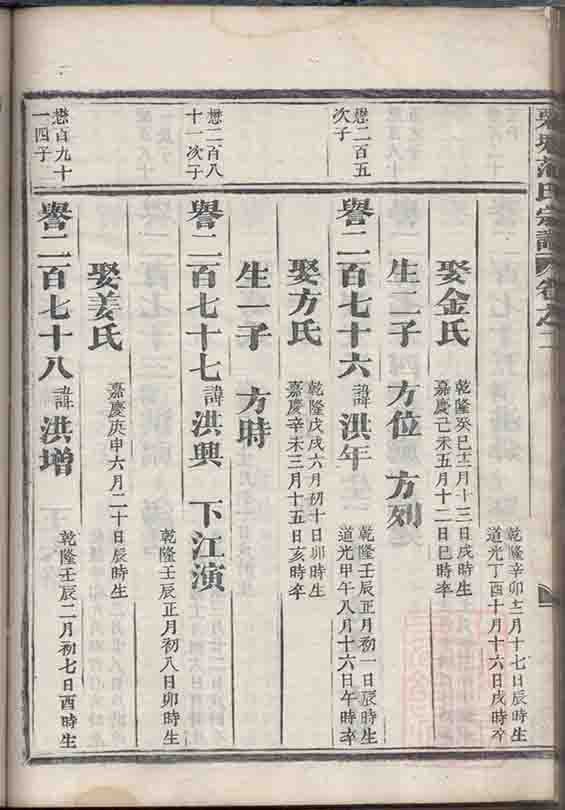 范氏宗譜 卷之二
乾隆辛卯十二月十七日辰時生
道光丁酉十月十六日戌時卒
娶金氏
乾隆癸巳十二月十三日戌時生
嘉慶己未五月十二日巳時卒
生二子 方位 方列
懋二百五
次子
譽二百七十六 諱洪年
乾隆壬辰正月初一日辰時生
道光甲午八月十六日午時卒
娶方氏
乾隆戊戌六月初十日卯時生
嘉慶辛未三月十五日亥時卒
生一子 方時
懋二百八
十一次子
譽二百七十七 諱洪興 下江演
乾隆壬辰正月初八日卯時生
娶姜氏
嘉慶庚申六月二十日辰時生
懋百九十
一四子
譽二百七十八 諱洪增
乾隆壬辰二月初七日酉時生